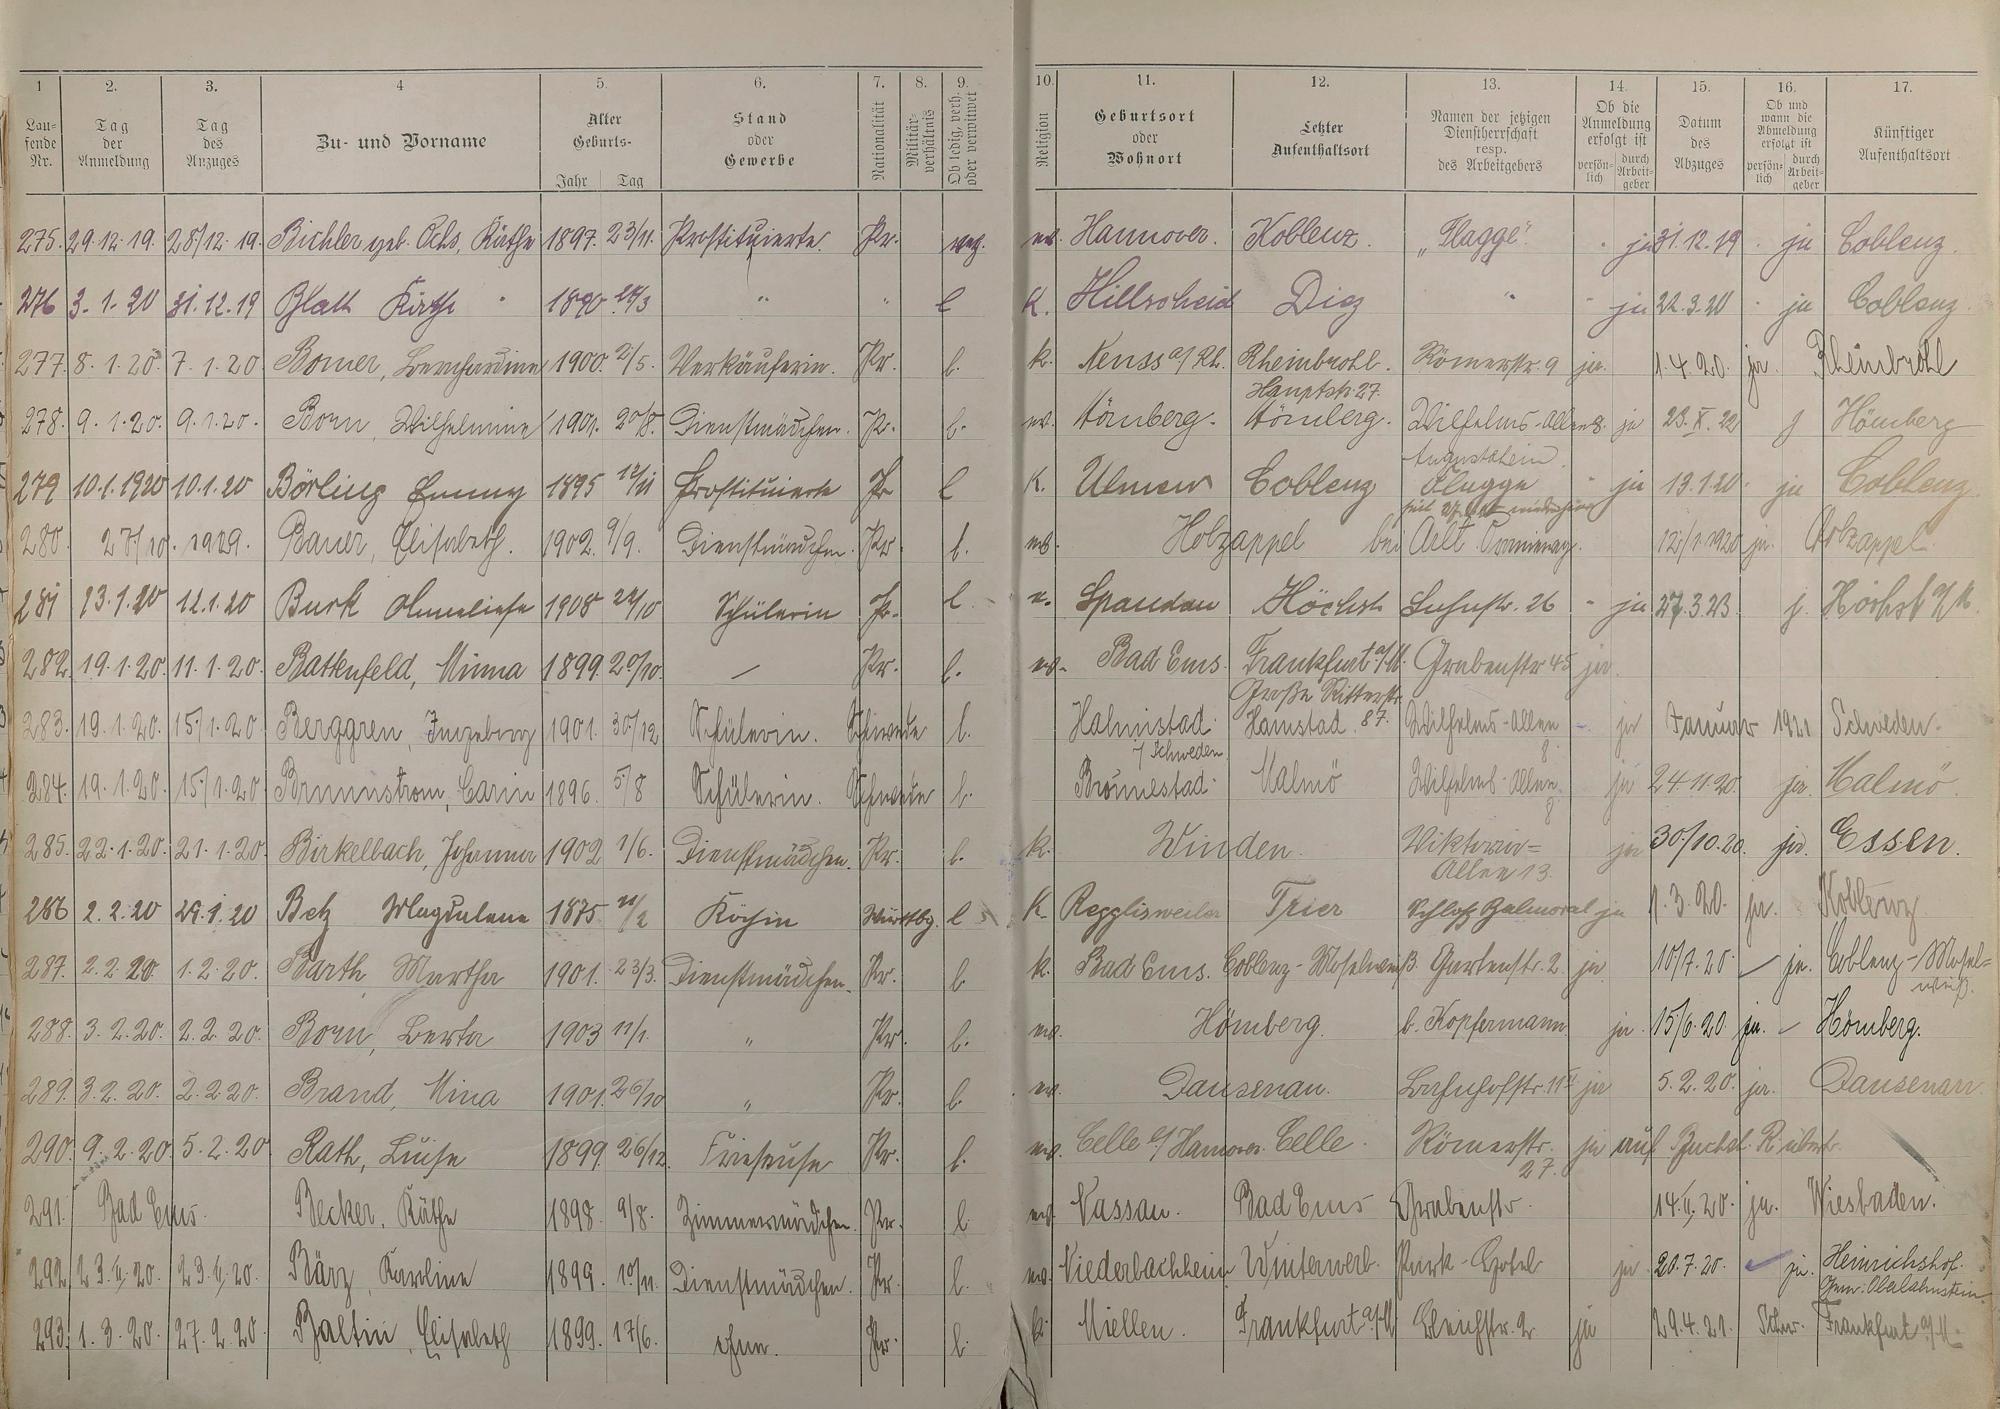 1 2. 3. 4 5. 6. 7. 8. 9. 10. 11. 12. 13. 14. 15. 16. 17.
Lau-
fende
Nr.
Tag
der
Anmeldung
Tag
des
Anzuges
Zu- und Vorname
Alter
Geburts-
Jahr Tag
Stand
oder
Gewerbe
Nationalität
Militär-
verhältnis
Ob ledig, verh.
oder verwitwet
Religion
Geburtsort
oder
Wohnort
Letzter
Aufenthaltsort
Namen der jetzigen
Dienstherrschaft
resp.
des Arbeitgebers
Ob die
Anmeldung
erfolgt ist
persön-
lich
durch
Arbeit-
geber
Datum
des
Abzuges
Ob und
wann die
Abmeldung
erfolgt ist
persön-
lich
durch
Arbeit-
geber
Künftiger
Aufenthaltsort
275. 29.12.19. 28/12.19. Bichler geb. Ochs, Käthe 1897. 23/11. Prostituierte. Pr. ev. Hannover. Koblenz. „Flagge". ja 31.12.19 ja Coblenz.
276 3.1.20 31.12.19 Blatt Käthe 1890 " " l K. Hillscheid Diez " ja 22.3.20 ja Coblenz.
277. 8.1.20. 7.1.20. Bomer, Bernhardine 1900. 2/5. Verkäuferin. Pr. l. k. Neuss a/Rh. Rheinbrohl. Römerstr. 9 ja. 1.4.20. ja. Rheinbrohl
Hauptstr. 27.
278. 9.1.20. 9.1.20. Born, Wilhelmine 1901. 20/8. Dienstmädchen. Pr. l. ev. Hömberg. Hömberg. Wilhelms-Allee 8. ja 23.X.22 j Hömberg
Augustahein.
279 10.1.1920 10.1.20 Börling Emmy 1895 Prostituierte Pr l K. Ulmen Coblenz Flagge ja 13.1.20. ja Coblenz.
280. 27/10. 1919. Bauer, Elisabeth. 1902. 9/9. Dienstmädchen. Pr. l. ev. Holzappel bei 12/1.1920 ja. Holzappel.
281 13.1.20 12.1.20 Burk Anneliese 1908 24/10 Schülerin Pr. l. e. Spandau Höchst Lahnstr. 26 ja 27.3.23. j. Höchst a/M.
282. 19.1.20. 11.1.20. Battenfeld, Minna 1899. 20/10. — Pr. l. ev. Bad Ems. Frankfurt a/M. Grabenstr 45 ja.
Große Ritterstr.
283. 19.1.20. 15/1.20. Berggren, Ingeborg 1901. 30/12 Schülerin. Schwede l. Halmstad. Hamstad. 87. Wilhelms-Allee ja Januar 1921 Schweden.
i/Schweden. 8.
284. 19.1.20. 15/1.20. Brunnstrom, Carin 1896. 5/8 Schülerin. Schwede l. Brönnestad. Malmö Wilhelms-Allee ja 24.11.20. ja. Malmö.
8
285. 22.1.20. 21.1.20. Birkelbach, Johanna 1902 1/6. Dienstmädchen. Pr. l. k. Winden. Viktoria= ja 30/10.20. ja. Essen.
Allee 13.
286 2.2.20 29.1.20 Betz Magdalene 1875 Köchin Württbg. l K. Regglisweiler Trier Schloß Balmoral ja 1.3.20. ja. Koblenz
287. 2.2.20. 1.2.20. Barth, Martha 1901. 23/3. Dienstmädchen. Pr. l. k. Bad Ems. Coblenz-Moselweiß Gartenstr. 2. ja 10/7.20. ja. Coblenz-Mosel=
weiß.
288. 3.2.20. 2.2.20. Born, Berta 1903 11/1. " Pr. l. ev. Hömberg. b. Kopfermann ja. 15/6.20. ja. Hömberg.
289. 3.2.20. 2.2.20. Brand, Mina 1901. 26/10 " Pr. l. ev. Dausenau. Bahnhofstr. 11 ja 5.2.20. ja. Dausenau
290. 9.2.20. 5.2.20. Rath, Luise 1899. 26/12. Friseuse Pr. l. ev. Celle b/Hannover. Celle. Römerstr. ja auf Buchst. R übert.
27.
291. Bad Ems. Becker, Käthe 1898. 9/8. Zimmermädchen. Pr. l. ev. Nassau. Bad Ems Grabenstr. 14.II.20. ja. Wiesbaden.
292. 23.II.20. 23.II.20. Bärz, Karoline 1899. 10/11. Dienstmädchen. Pr. l. ev. Niederbachheim Winterwerb. Park-Hotel ja 20.7.20. ja. Heinrichshof.
Gem. Oberlahnstein.
293. 1.3.20. 27.2.20. Baltin, Elisabeth 1899. 17/6. ohne. Pr. l. k. Miellen. Frankfurt a/M Bleichstr. 2. ja 29.4.21. Frankfurt a/M.